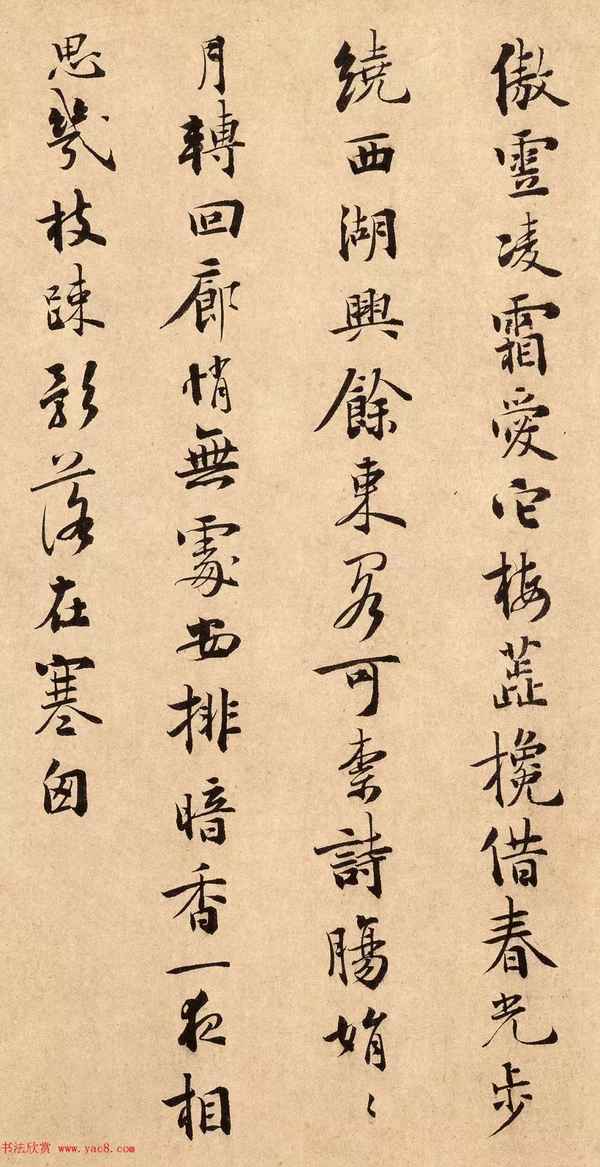 傲雪凌霜愛它梅蕋攙借春光步
繞西湖興餘東閣可柰詩腸娟〻
月轉回廊悄無處安排暗香一夜相
思幾枝疎影落在寒囱
书法欣赏 www.yac8.com